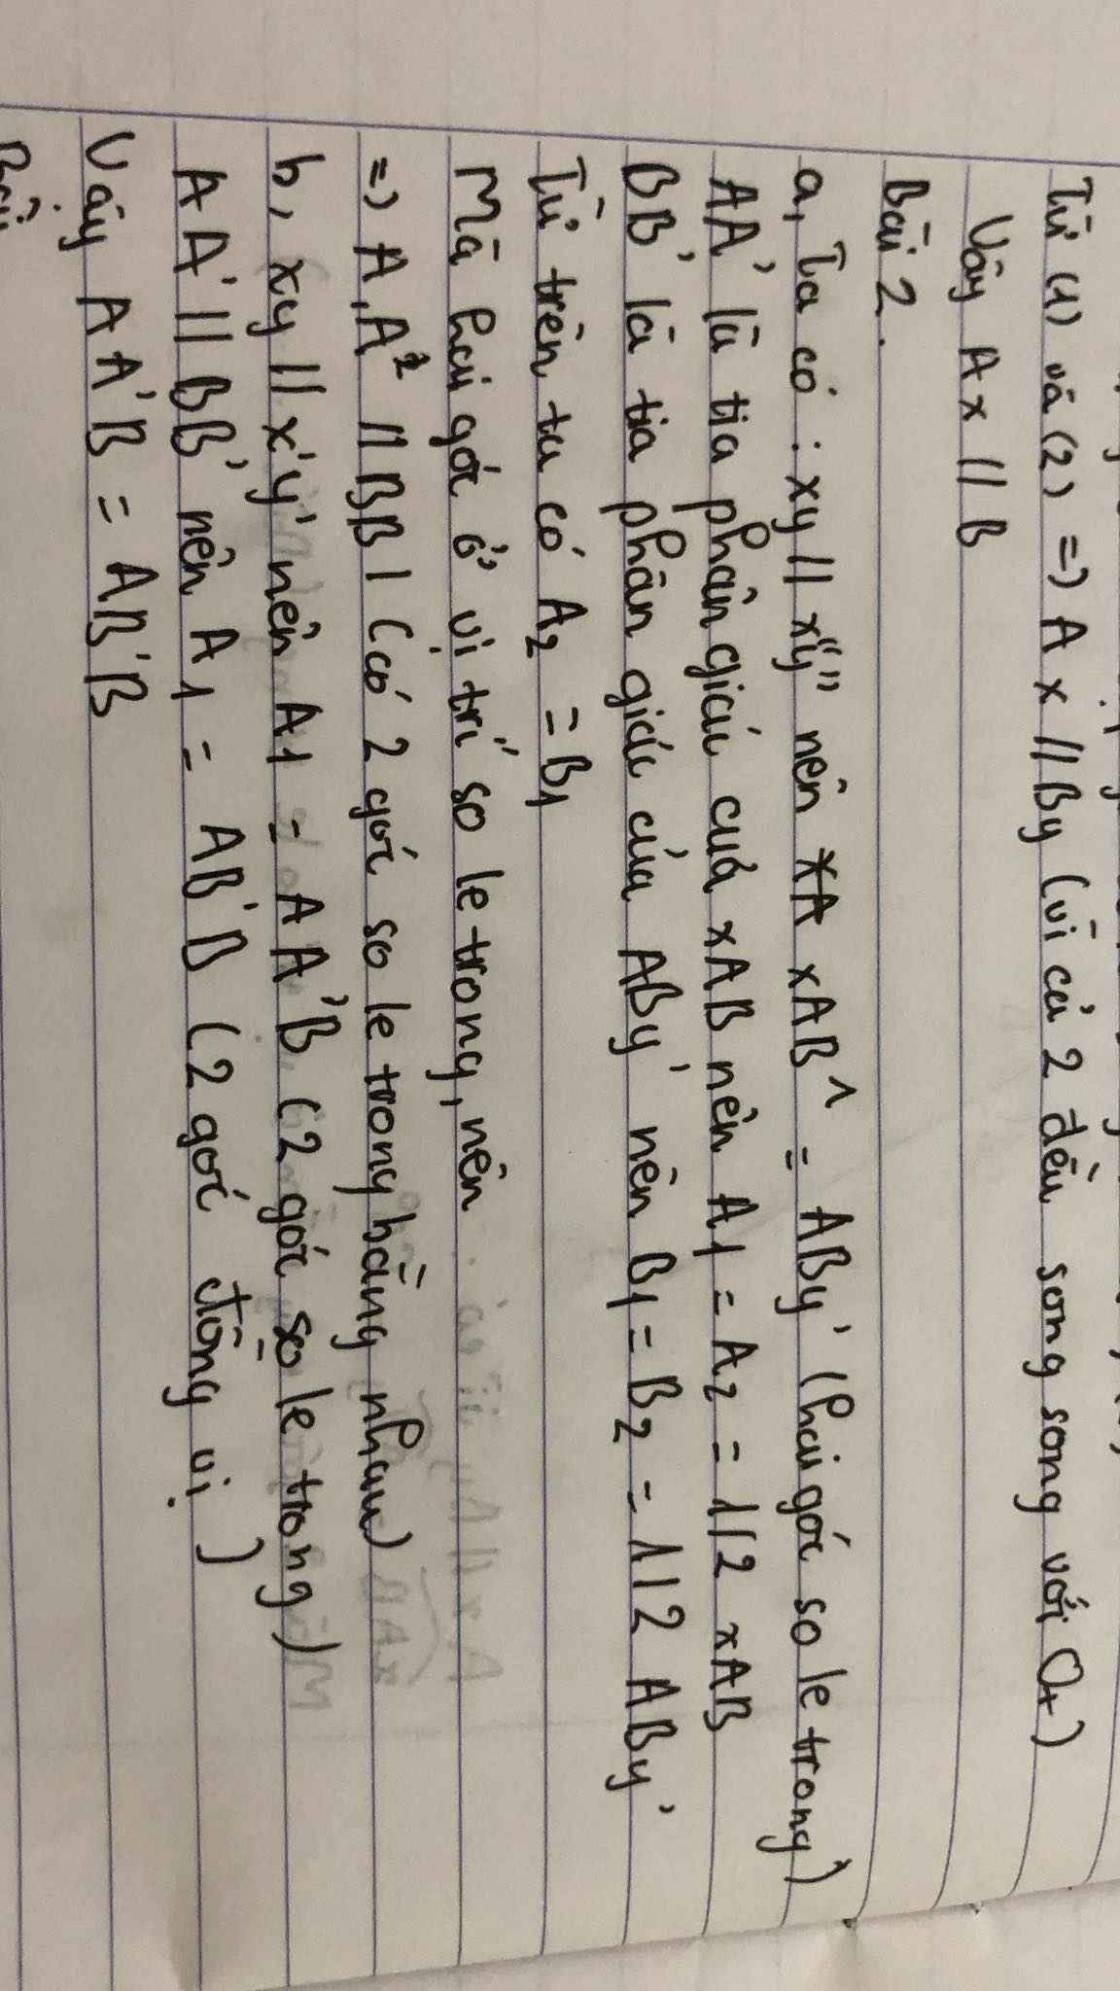 Từ (1) và (2) => Ax // By (vì cả 2 đều song song với Ot)
Vậy Ax // B
Bài 2.
a, Ta có : xy // x'y' nên xAB^ = ABy' (hai góc so le trong)
AA' là tia phân giác của xAB nên A1 = A2 = 1/2 xAB
BB' là tia phân giác của ABy' nên B1 = B2 = 1/2 ABy'
Từ trên ta có A2 = B1
Mà hai góc ở vị trí so le trong, nên
=> A,A² // BB1 (có 2 góc so le trong bằng nhau)
b, xy // x'y' nên A1 = AA'B (2 góc so le trong)
AA' // BB' nên A1 = AB'B (2 góc đồng vị)
Vậy AA'B = AB'B